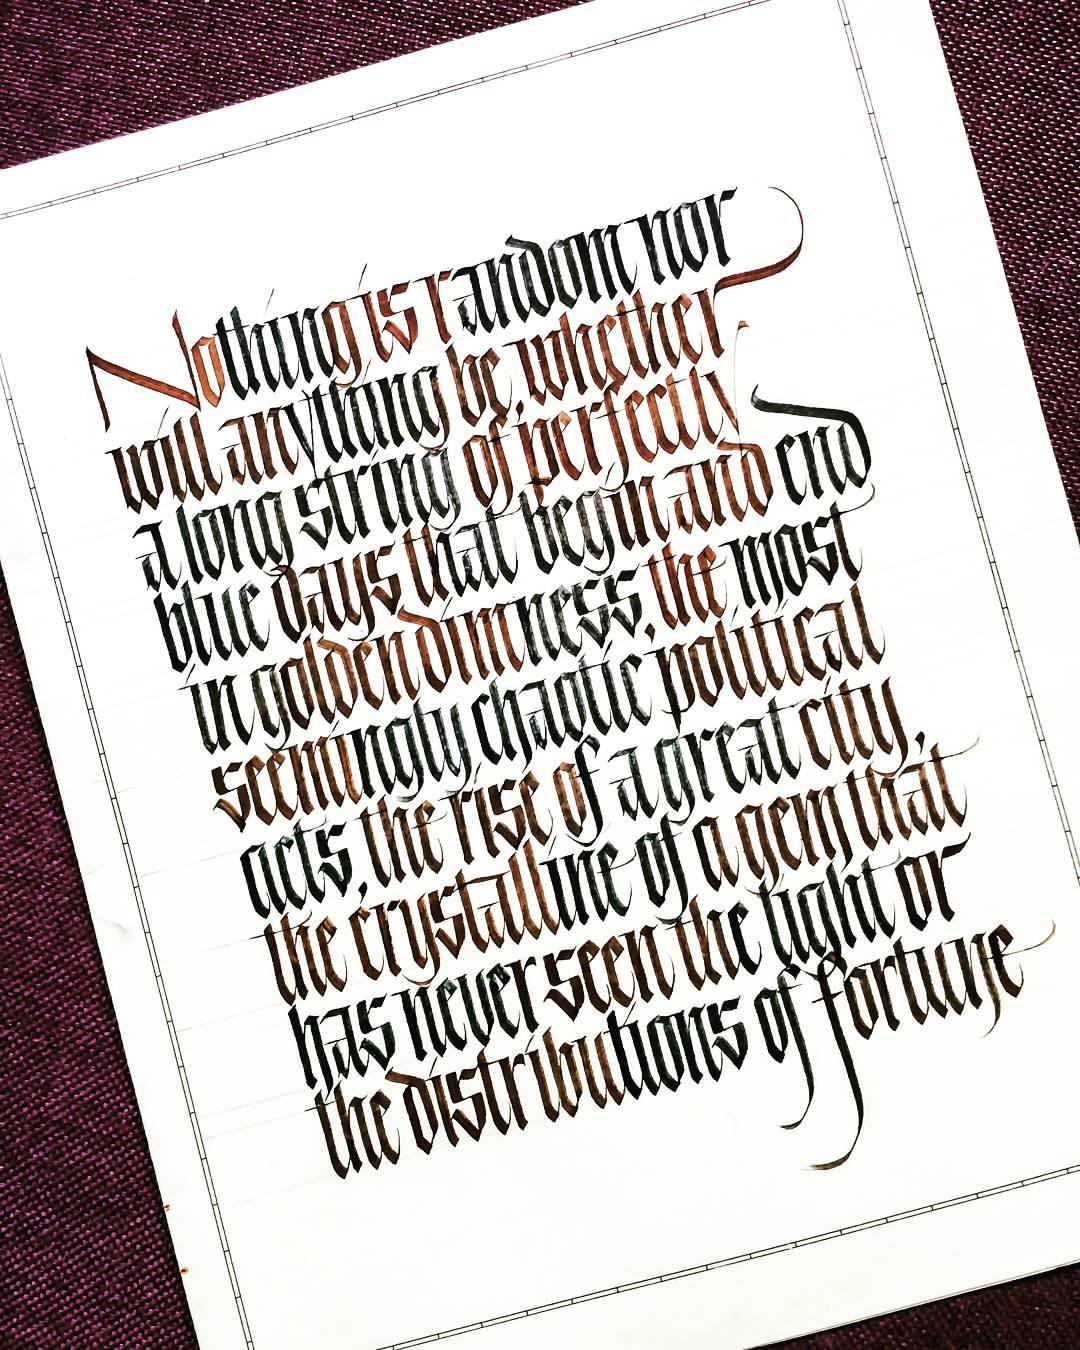 Nothing is random nor
will anything be, whether
a long string of perfectly
blue days that begin and end
in golden dimness, the most
seemingly chaotic political
acts, the rise of a great city,
the crystalline of a gem that
has never seen the light or
the distributions of fortune